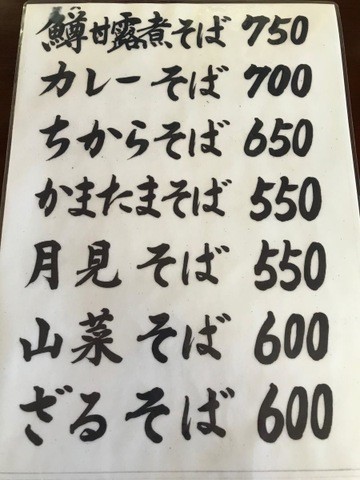 鱒甘露煮そば 750
カレーそば 700
ちからそば 650
かまたまそば 550
月見そば 550
山菜そば 600
ざるそば 600